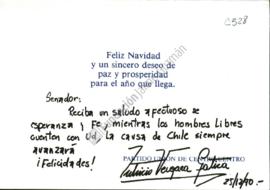 C528
Feliz Navidad
y un sincero deseo de
paz y prosperidad
para el año que llega.
Senador:
Reciba un saludo afectuoso de
esperanza y Fe, mientras los hombres Libres
cuenten con Ud. La causa de Chile siempre
avanzará
¡Felicidades!
PARTIDO UNION DE CENTRO CENTRO
Patricio Vergara
25/12/90.-